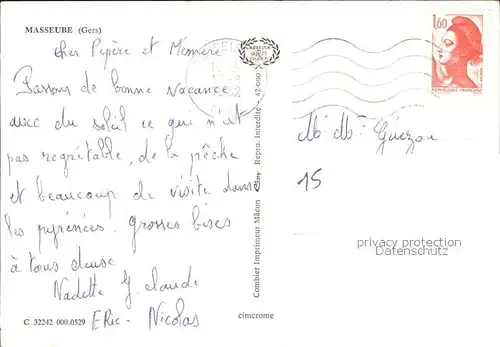 MASSEUBE (Gers)
cher Pépère et Mémère
Passons de bonne vacance
avec du soleil ce que n'est
pas regrétable, de la pêche
et beaucoup de visite dans
les pyrénées. grosses bises
à tous deuse
Nadette J. claude
ERic - Nicolas
C 32242 000.0529
cimcrome
Combier Imprimeur Mâcon Cim Repro. Interdite - 42-000
1,60
REPUBLIQUE FRANÇAISE
M Mme Guezou
15
privacy protection
AnsichtskartenVersand.com